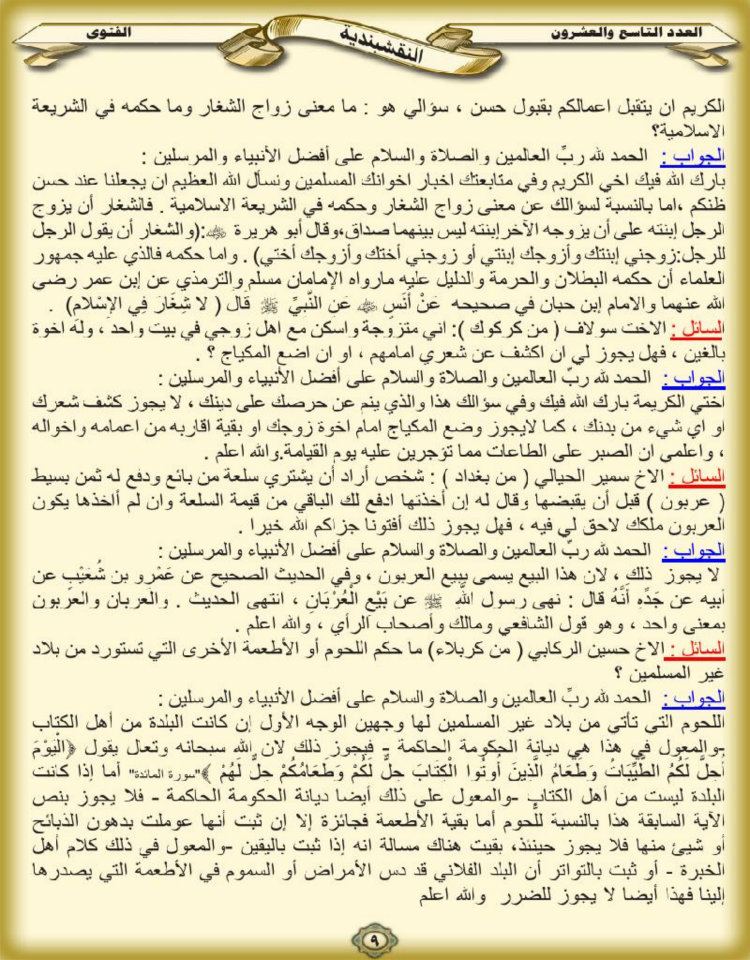 العدد التاسع والعشرون
النقشبندية
الفتوى
الكريم ان يتقبل اعمالكم بقبول حسن ، سؤالي هو : ما معنى زواج الشغار وما حكمه في الشريعة
الاسلامية؟
الجواب : الحمد لله ربِّ العالمين والصلاة والسلام على أفضل الأنبياء والمرسلين :
بارك الله فيك اخي الكريم وفي متابعتك اخبار اخوانك المسلمين ونسأل الله العظيم ان يجعلنا عند حسن
ظنكم ،اما بالنسبة لسؤالك عن معنى زواج الشغار وحكمه في الشريعة الاسلامية . فالشغار أن يزوج
الرجل إبنته على أن يزوجه الآخرإبنته ليس بينهما صداق،وقال أبو هريرة ﷺ:(والشغار أن يقول الرجل
للرجل:زوجني إبنتك وأزوجك إبنتي أو زوجني أختك وأزوجك أختي) . واما حكمه فالذي عليه جمهور
العلماء أن حكمه البطلان والحرمة والدليل عليه مارواه الإمامان مسلم والترمذي عن إبن عمر رضى
الله عنهما والامام إبن حبان في صحيحه عَنْ أَنَسٍ عَنِ النَّبِيِّ ﷺ قَالَ ( لا شِغَارَ فِي الإِسْلام) .
السائل : الاخت سولاف ( من كركوك ): اني متزوجة واسكن مع اهل زوجي في بيت واحد ، وله اخوة
بالغين ، فهل يجوز لي ان اكشف عن شعري امامهم ، او ان اضع المكياج ؟ .
الجواب : الحمد لله ربِّ العالمين والصلاة والسلام على أفضل الأنبياء والمرسلين :
اختي الكريمة بارك الله فيك وفي سؤالك هذا والذي ينم عن حرصك على دينك ، لا يجوز كشف شعرك
او اي شيء من بدنك ، كما لايجوز وضع المكياج امام اخوة زوجك او بقية اقاربه من اعمامه واخواله
، واعلمي ان الصبر على الطاعات مما تؤجرين عليه يوم القيامة.والله اعلم .
السائل : الاخ سمير الحيالي ( من بغداد ) : شخص أراد أن يشتري سلعة من بائع ودفع له ثمن بسيط
( عربون ) قبل أن يقبضها وقال له إن أخذتها ادفع لك الباقي من قيمة السلعة وان لم أأخذها يكون
العربون ملكك لاحق لي فيه ، فهل يجوز ذلك أفتونا جزاكم الله خيرا .
الجواب : الحمد لله ربِّ العالمين والصلاة والسلام على أفضل الأنبياء والمرسلين :
لا يجوز ذلك ، لان هذا البيع يسمى ببيع العربون ، وفي الحديث الصحيح عن عَمْرو بن شُعَيْبٍ عن
أبيه عن جَدِّه أَنَّهُ قال : نهى رسول اللَّهِ ﷺ عن بَيْعِ الْعُرْبَانِ ، انتهى الحديث . والعربان والعربون
بمعنى واحد ، وهو قول الشافعي ومالك وأصحاب الرأي ، والله اعلم .
السائل : الاخ حسين الركابي ( من كربلاء) ما حكم اللحوم أو الأطعمة الأخرى التي تستورد من بلاد
غير المسلمين ؟
الجواب : الحمد لله ربِّ العالمين والصلاة والسلام على أفضل الأنبياء والمرسلين :
اللحوم التي تأتي من بلاد غير المسلمين لها وجهين الوجه الأول إن كانت البلدة من أهل الكتاب
-والمعول في هذا هي ديانة الحكومة الحاكمة - فيجوز ذلك لان الله سبحانه وتعال يقول ﴿الْيَوْمَ
أُحِلَّ لَكُمُ الطَّيِّبَاتُ وَطَعَامُ الَّذِينَ أُوتُوا الْكِتَابَ حِلٌّ لَكُمْ وَطَعَامُكُمْ حِلُّ لَهُمْ ﴾"سورة المائدة" أما إذا كانت
البلدة ليست من أهل الكتاب -والمعول على ذلك أيضا ديانة الحكومة الحاكمة - فلا يجوز بنص
الآية السابقة هذا بالنسبة للحوم أما بقية الأطعمة فجائزة إلا إن ثبت أنها عوملت بدهون الذبائح
أو شيئ منها فلا يجوز حينئذ، بقيت هناك مسالة انه إذا ثبت باليقين -والمعول في ذلك كلام أهل
الخبرة - أو ثبت بالتواتر أن البلد الفلاني قد دس الأمراض أو السموم في الأطعمة التي يصدرها
إلينا فهذا أيضا لا يجوز للضرر والله اعلم
٩